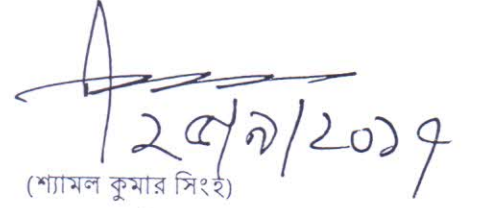 ২৫/৯/২০১৭
(শ্যামল কুমার সিংহ)